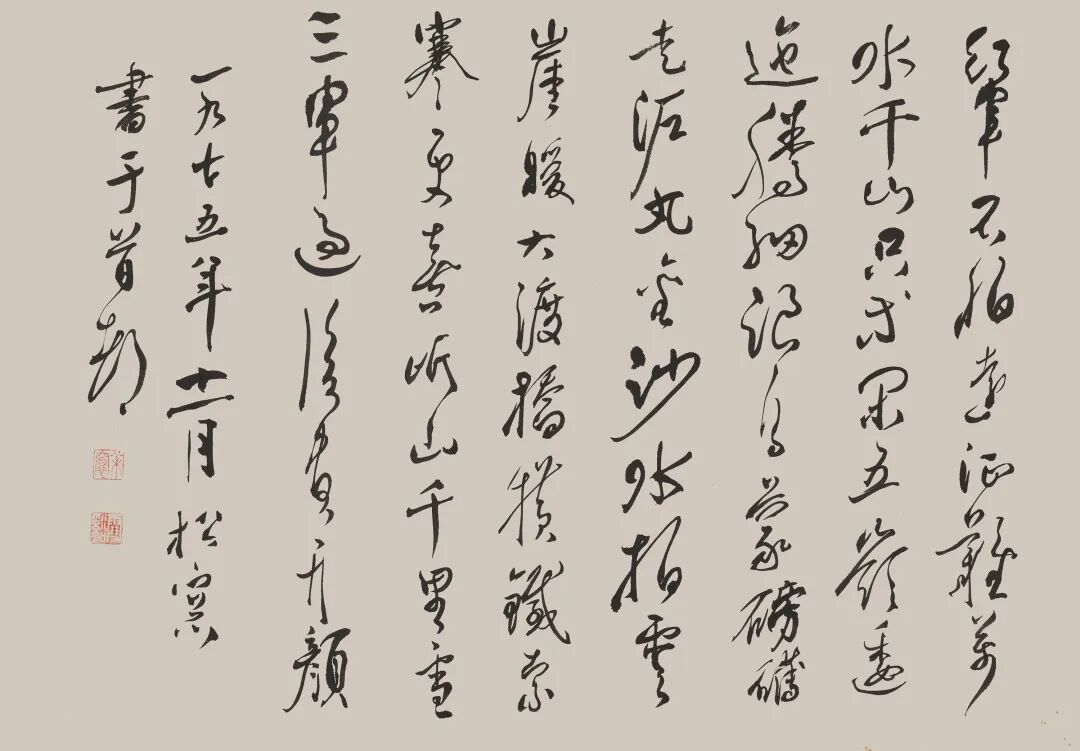 紅軍不怕遠征難萬
水千山只等閑五嶺逶
迤騰細浪烏蒙磅礴
走泥丸金沙水拍雲
崖暖大渡橋橫鐵索
寒更喜岷山千里雪
三軍過後盡開顏
一九七五年十一月松窗
書于首都